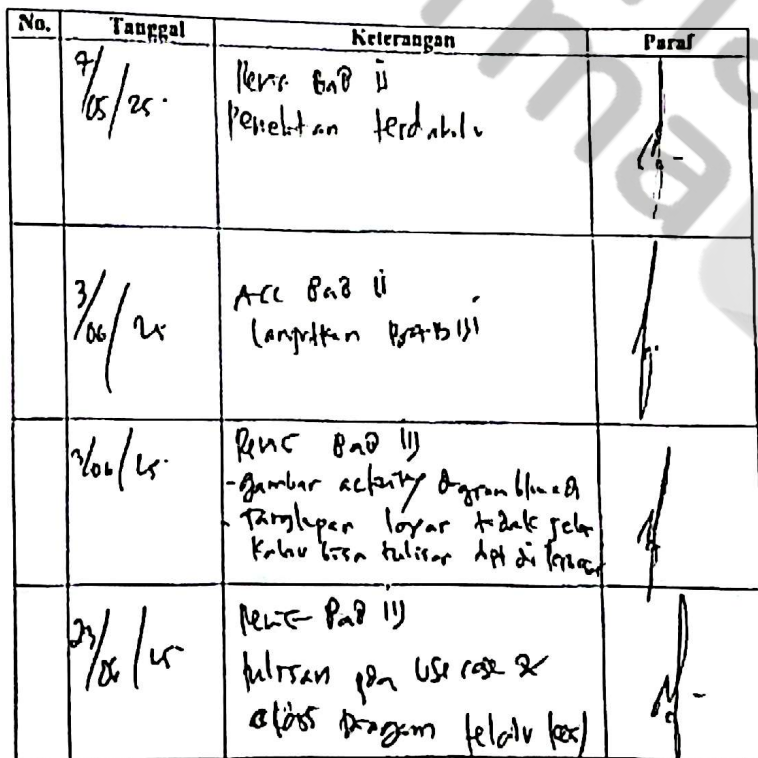 No. Tanggal Keterangan Paraf
/05/25 Revisi BAB II
Penelitian terdahulu
3/06/25 Acc BAB II
Lanjutkan BAB III
/06/25 Revisi BAB III
- gambar activity diagram
- Tangkapan layar tidak jelas
Kalau bisa tulisan dpt di
23/06/25 Revisi BAB III
tulisan pada use case &
class Diagram terlalu kecil